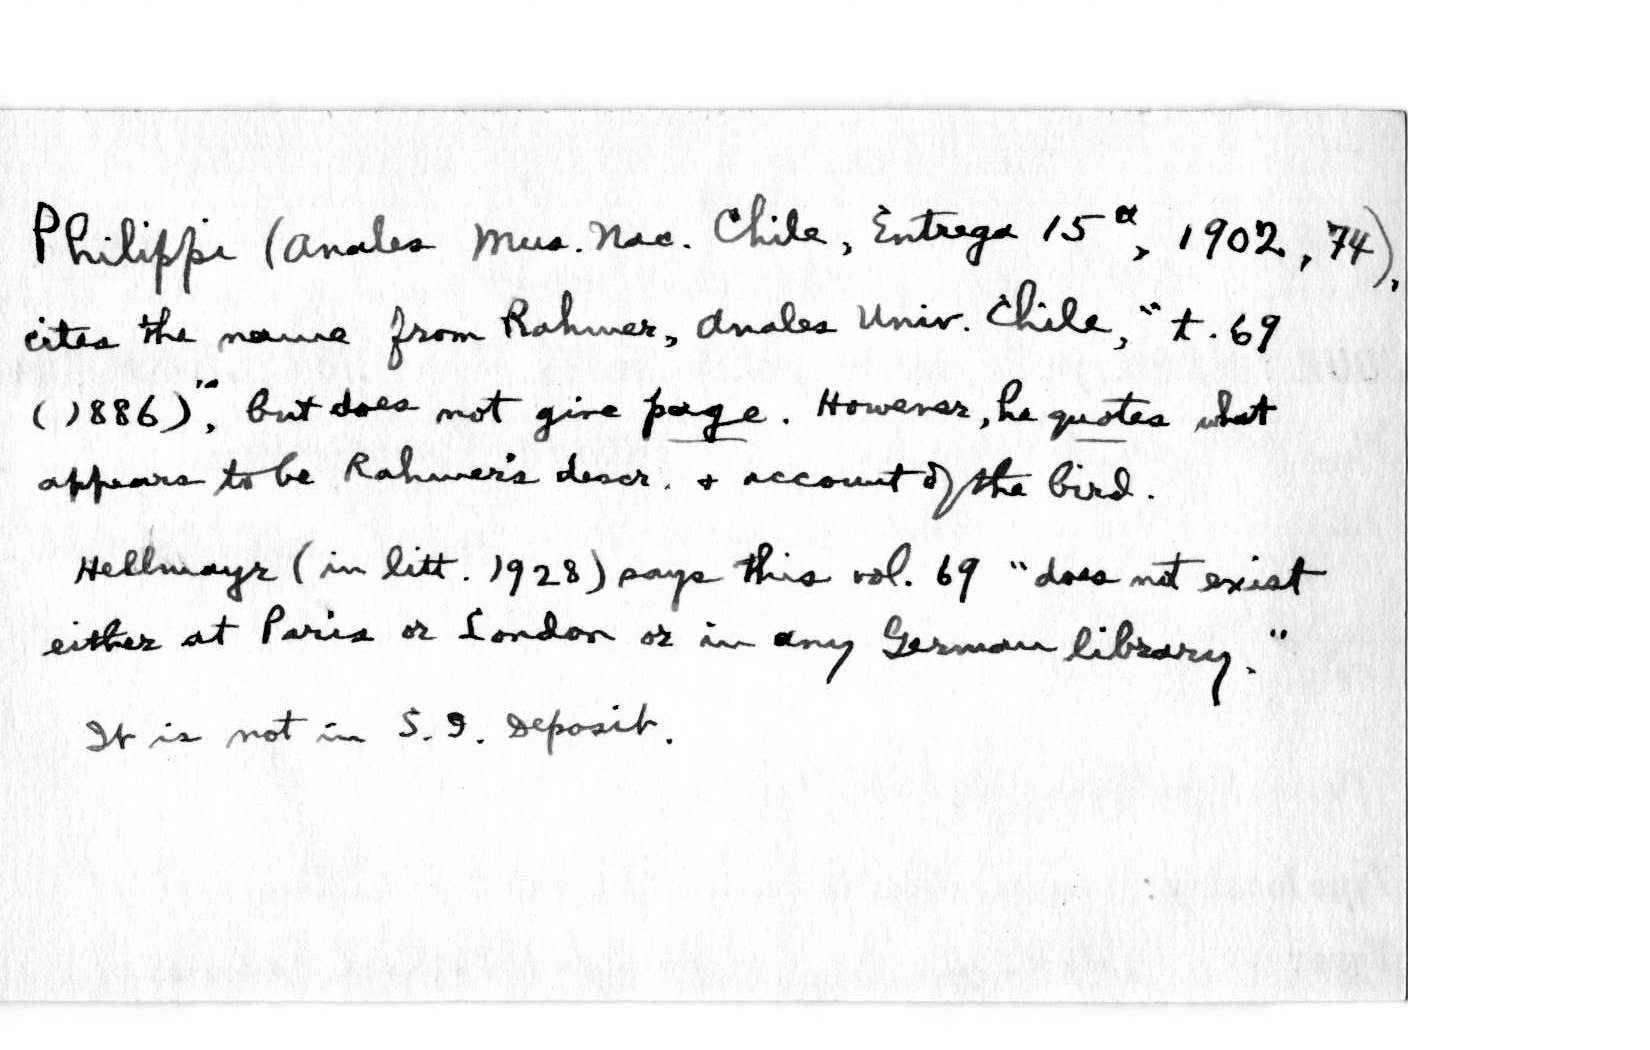 Philippi (Anales Mus. Nac. Chile, Entrega 15ª, 1902, 74),
cites the name from Rahmer, Anales Univ. Chile, "t. 69
(1886)", but does not give page. However, he quotes what
appears to be Rahmer's descr. + account of the bird.
Hellmayr (in litt. 1928) says this vol. 69 "does not exist
either at Paris or London or in any German library."
It is not in S. I. Deposit.